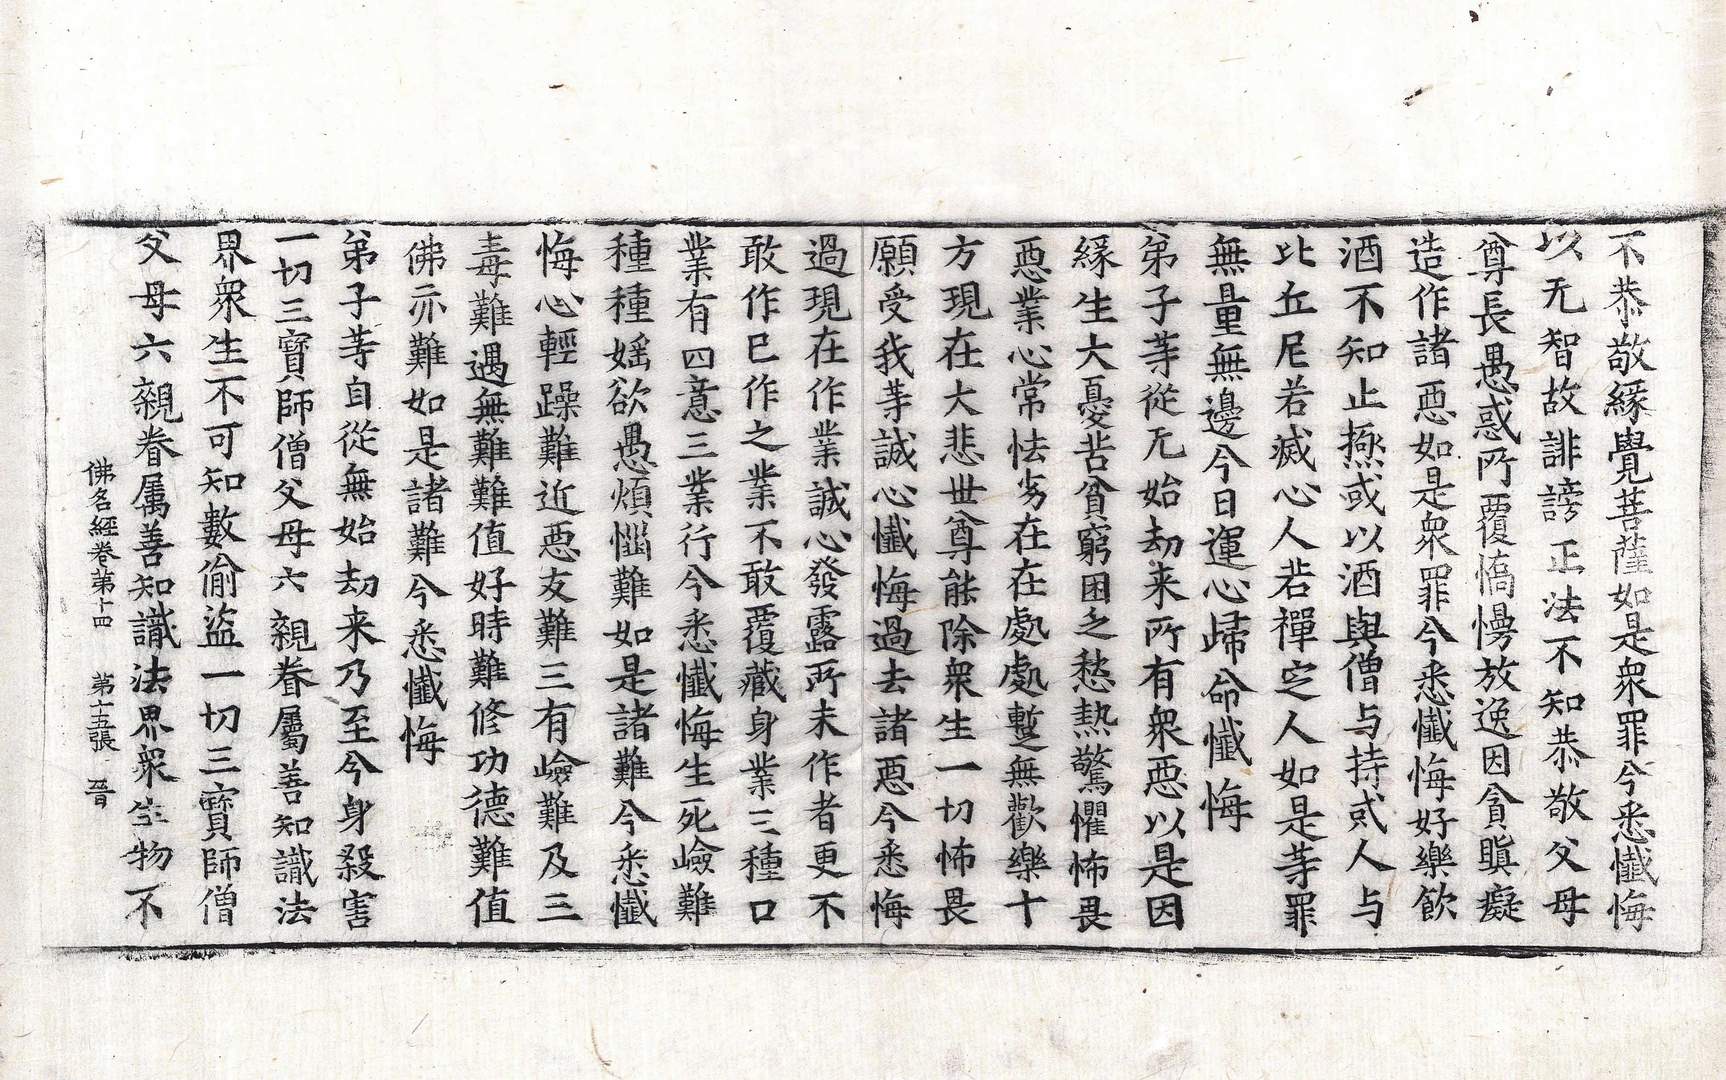 不恭敬緣覺菩薩如是衆罪今悉懺悔
以无智故誹謗正法不知恭敬父母
尊長愚惑所覆憍慢放逸因貪瞋癡
造作諸惡如是衆罪今悉懺悔好樂飮
酒不知止極或以酒與僧与持戒人与
比丘尼若滅心人若禪定人如是等罪
無量無邊今日運心歸命懺悔
弟子等從无始劫来所有衆惡以是因
緣生大憂苦貧窮困乏愁熱驚懼怖畏
惡業心常怯劣在在處處蹔無歡樂十
方現在大悲世尊能除衆生一切怖畏
願受我等誠心懺悔過去諸惡今悉悔
過現在作業誠心發露所未作者更不
敢作已作之業不敢覆藏身業三種口
業有四意三業行今悉懺悔生死嶮難
種種婬欲愚煩惱難如是諸難今悉懺
悔心輕躁難近惡友難三有嶮難及三
毒難遇無難難值好時難修功德難值
佛亦難如是諸難今悉懺悔
弟子等自從無始劫来乃至今身殺害
一切三寶師僧父母六親眷屬善知識法
界衆生不可知數偷盜一切三寶師僧
父母六親眷屬善知識法界衆生物不
佛名經卷第十四　第十五張　晉